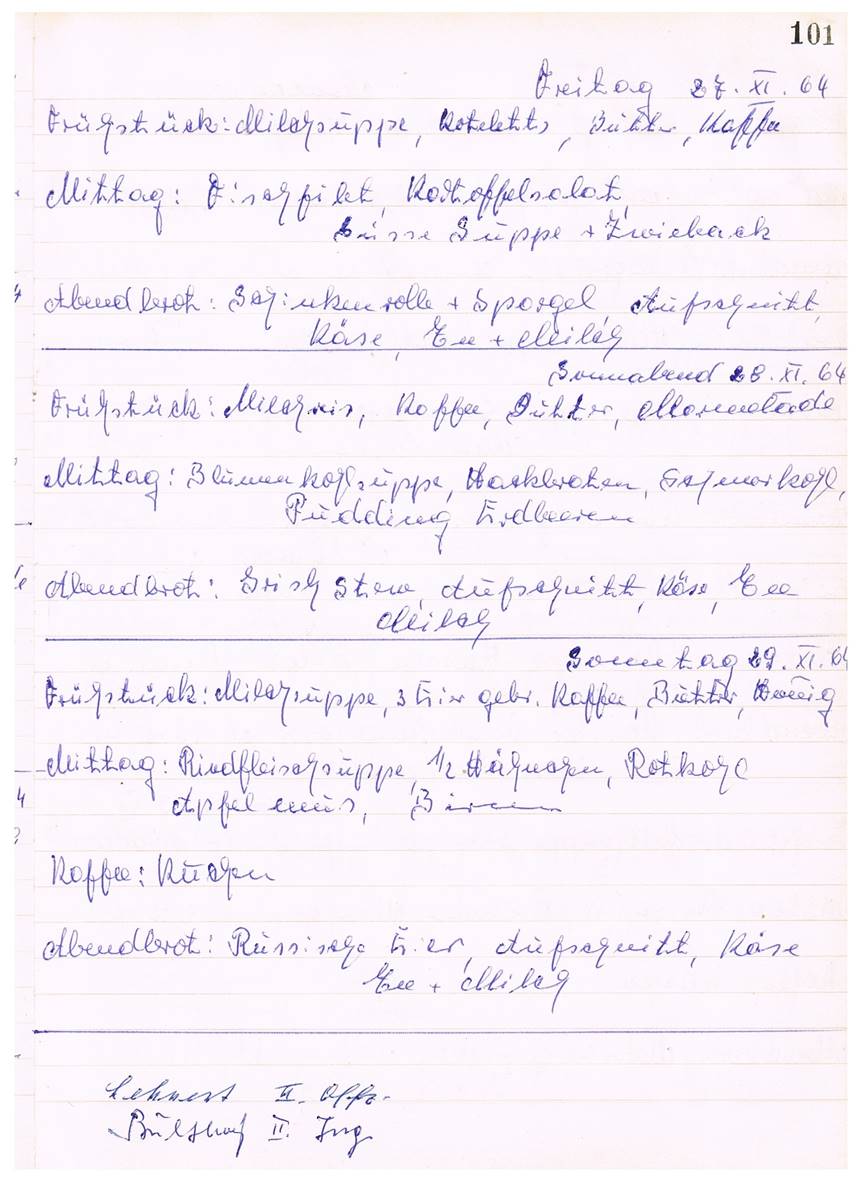 101
Freitag 27. XI. 64
Frühstück: Milchsuppe, Koteletts, Butter, Kaffee
Mittag: Fischfilet, Kartoffelsalat,
Süsse Suppe + Zwieback
Abendbrot: Schinkenrolle + Spargel, Aufschnitt,
Käse, Tee + Milch
Sonnabend 28. XI. 64
Frühstück: Milchreis, Kaffee, Butter, Marmelade
Mittag: Blumenkohlsuppe, Hackbraten, Schmorkohl,
Pudding Erdbeeren
Abendbrot: Irish Stew, Aufschnitt, Käse, Tee
Milch
Sonntag 29. XI. 64
Frühstück: Milchsuppe, 3 Eier gebr. Kaffee, Butter, Honig
Mittag: Rindfleischsuppe, 1/2 Hühnchen, Rotkohl
Apfelmus, Birnen
Kaffee: Kuchen
Abendbrot: Russische Eier, Aufschnitt, Käse
Tee + Milch
Lehnert II. Offz.
II. Ing.